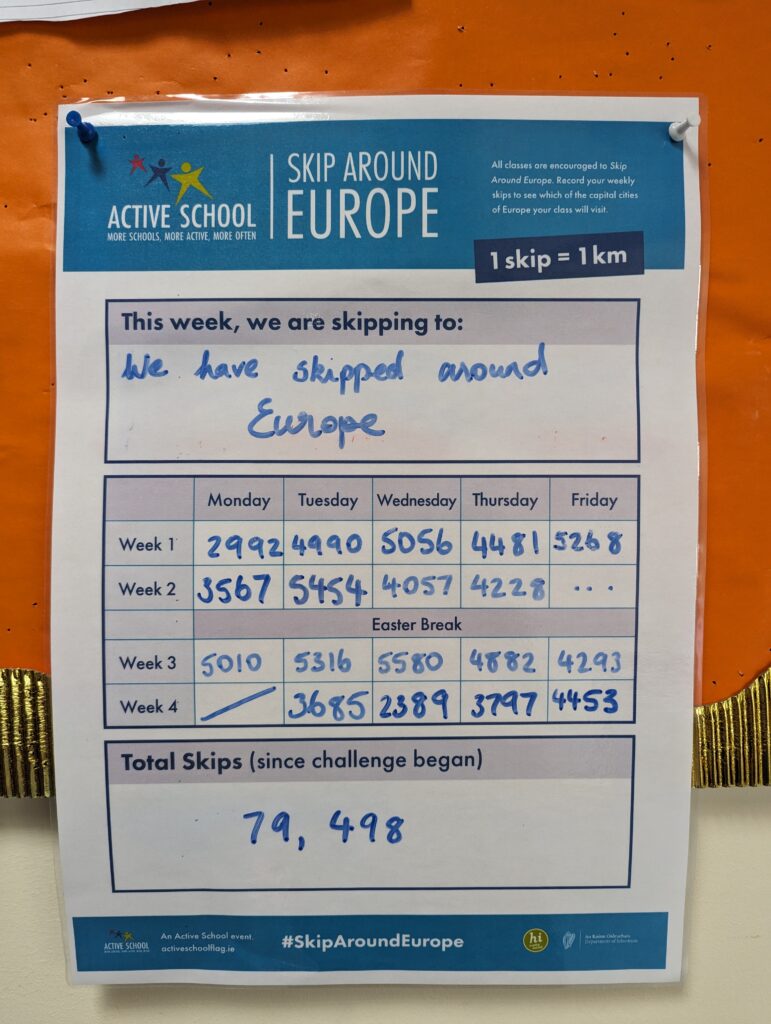 ACTIVE SCHOOL
MORE SCHOOLS, MORE ACTIVE, MORE OFTEN
SKIP AROUND
EUROPE
All classes are encouraged to Skip
Around Europe. Record your weekly
skips to see which of the capital cities
of Europe your class will visit.
1 skip = 1 km
This week, we are skipping to:
We have skipped around
Europe
Monday Tuesday Wednesday Thursday Friday
Week 1 2992 4990 5056 4481 5268
Week 2 3567 5454 4057 4228 ...
Easter Break
Week 3 5010 5316 5580 4882 4293
Week 4 / 3685 2389 3797 4453
Total Skips (since challenge began)
79, 498
ACTIVE SCHOOL
MORE SCHOOLS, MORE ACTIVE, MORE OFTEN
An Active School event.
activeschoolflag.ie
#SkipAroundEurope
hi
An Roinn Oideachais
Department of Education